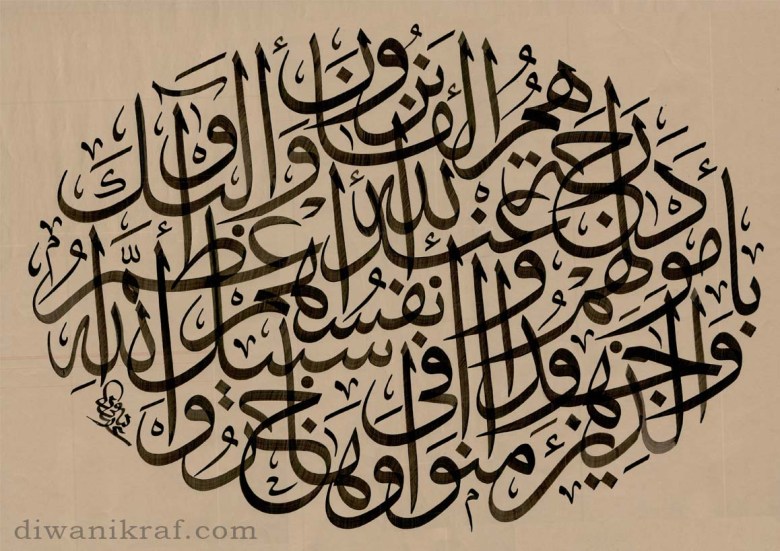 الذين آمنوا وهاجروا
وجاهدوا في سبيل الله
بأموالهم وأنفسهم أعظم
درجة عند الله وأولئك
هم الفائزون
diwanikraf.com